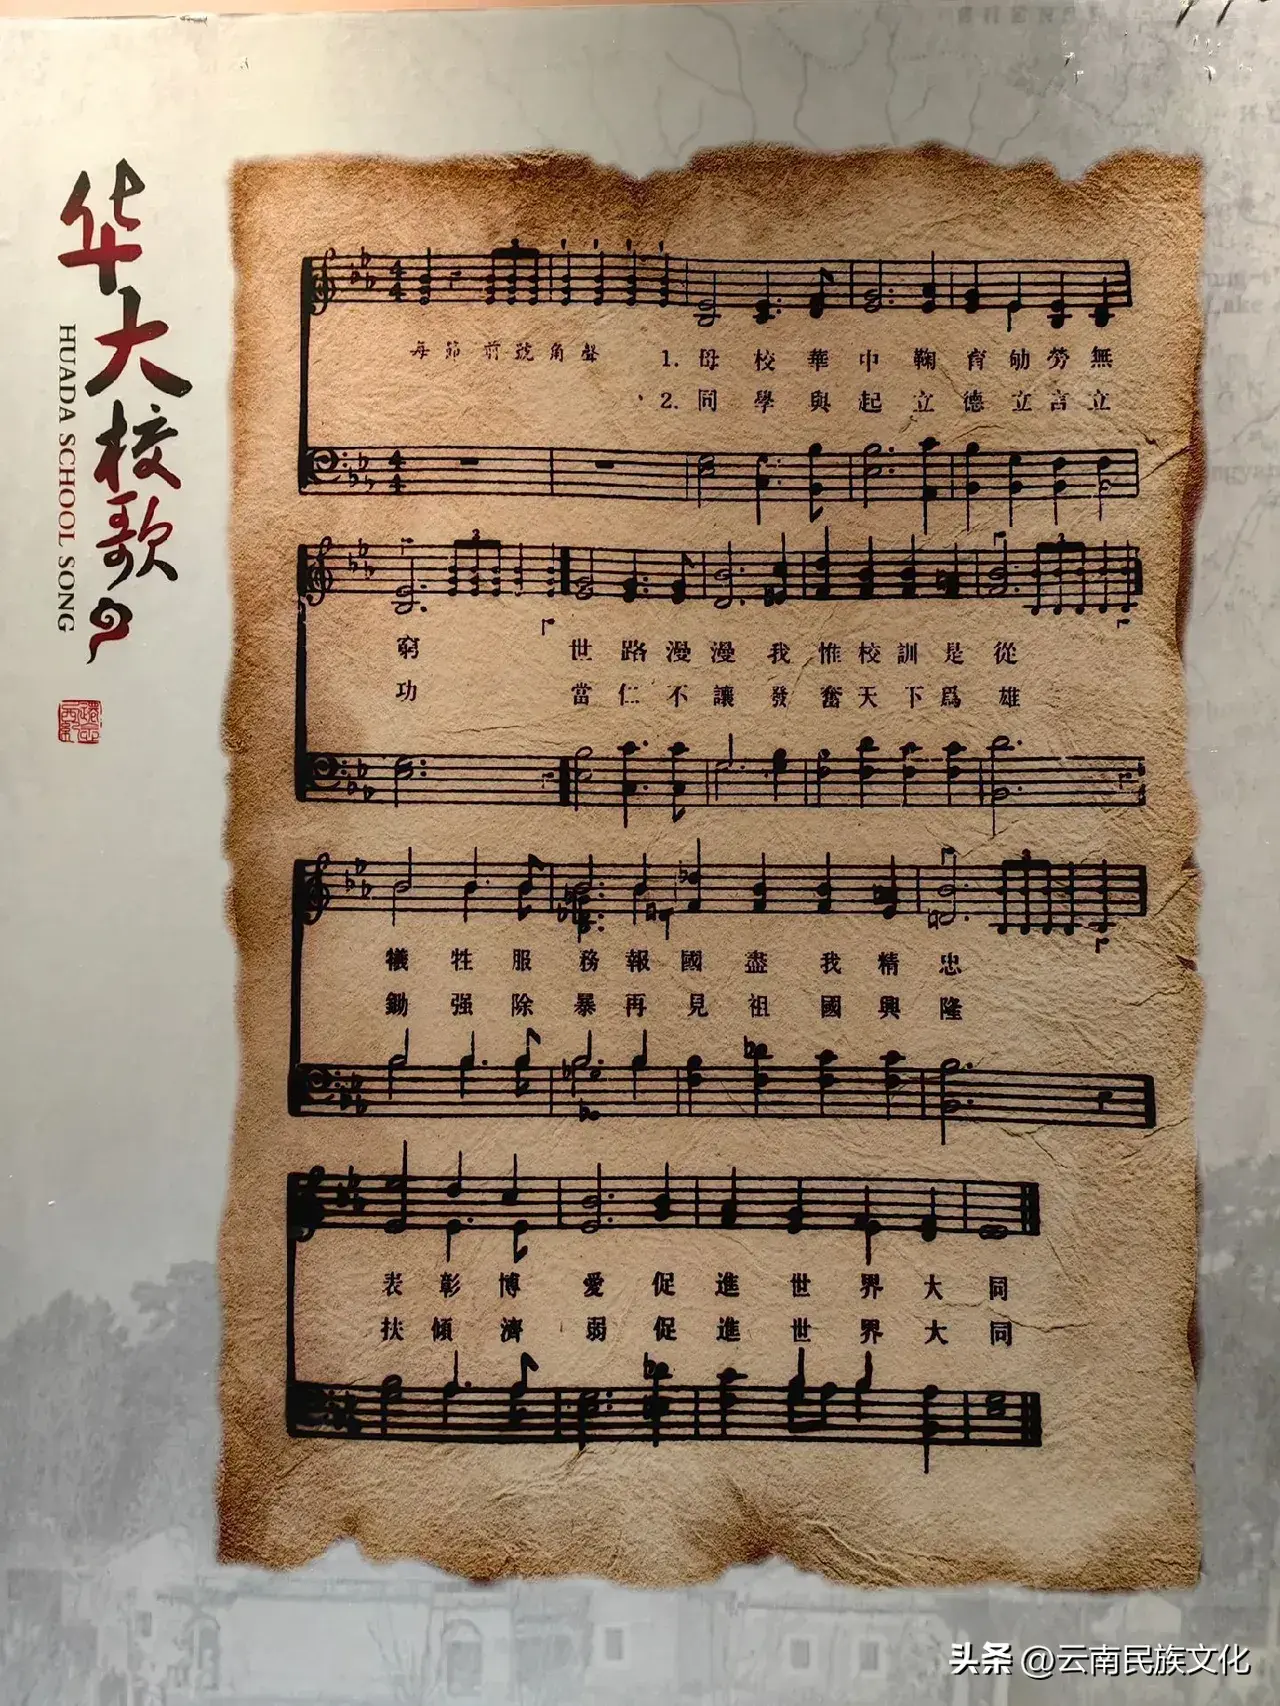 华大校歌
HUADA SCHOOL SONG
每節前號角聲
1. 母校華中鞠育劬勞無
2. 同學與起立德立言立
窮 世路漫漫我惟校訓是從
功 當仁不讓發奮天下爲雄
犧牲服務報國盡我精忠
鋤强除暴再見祖國興隆
表彰博愛促進世界大同
扶傾濟弱促進世界大同
头条 @云南民族文化